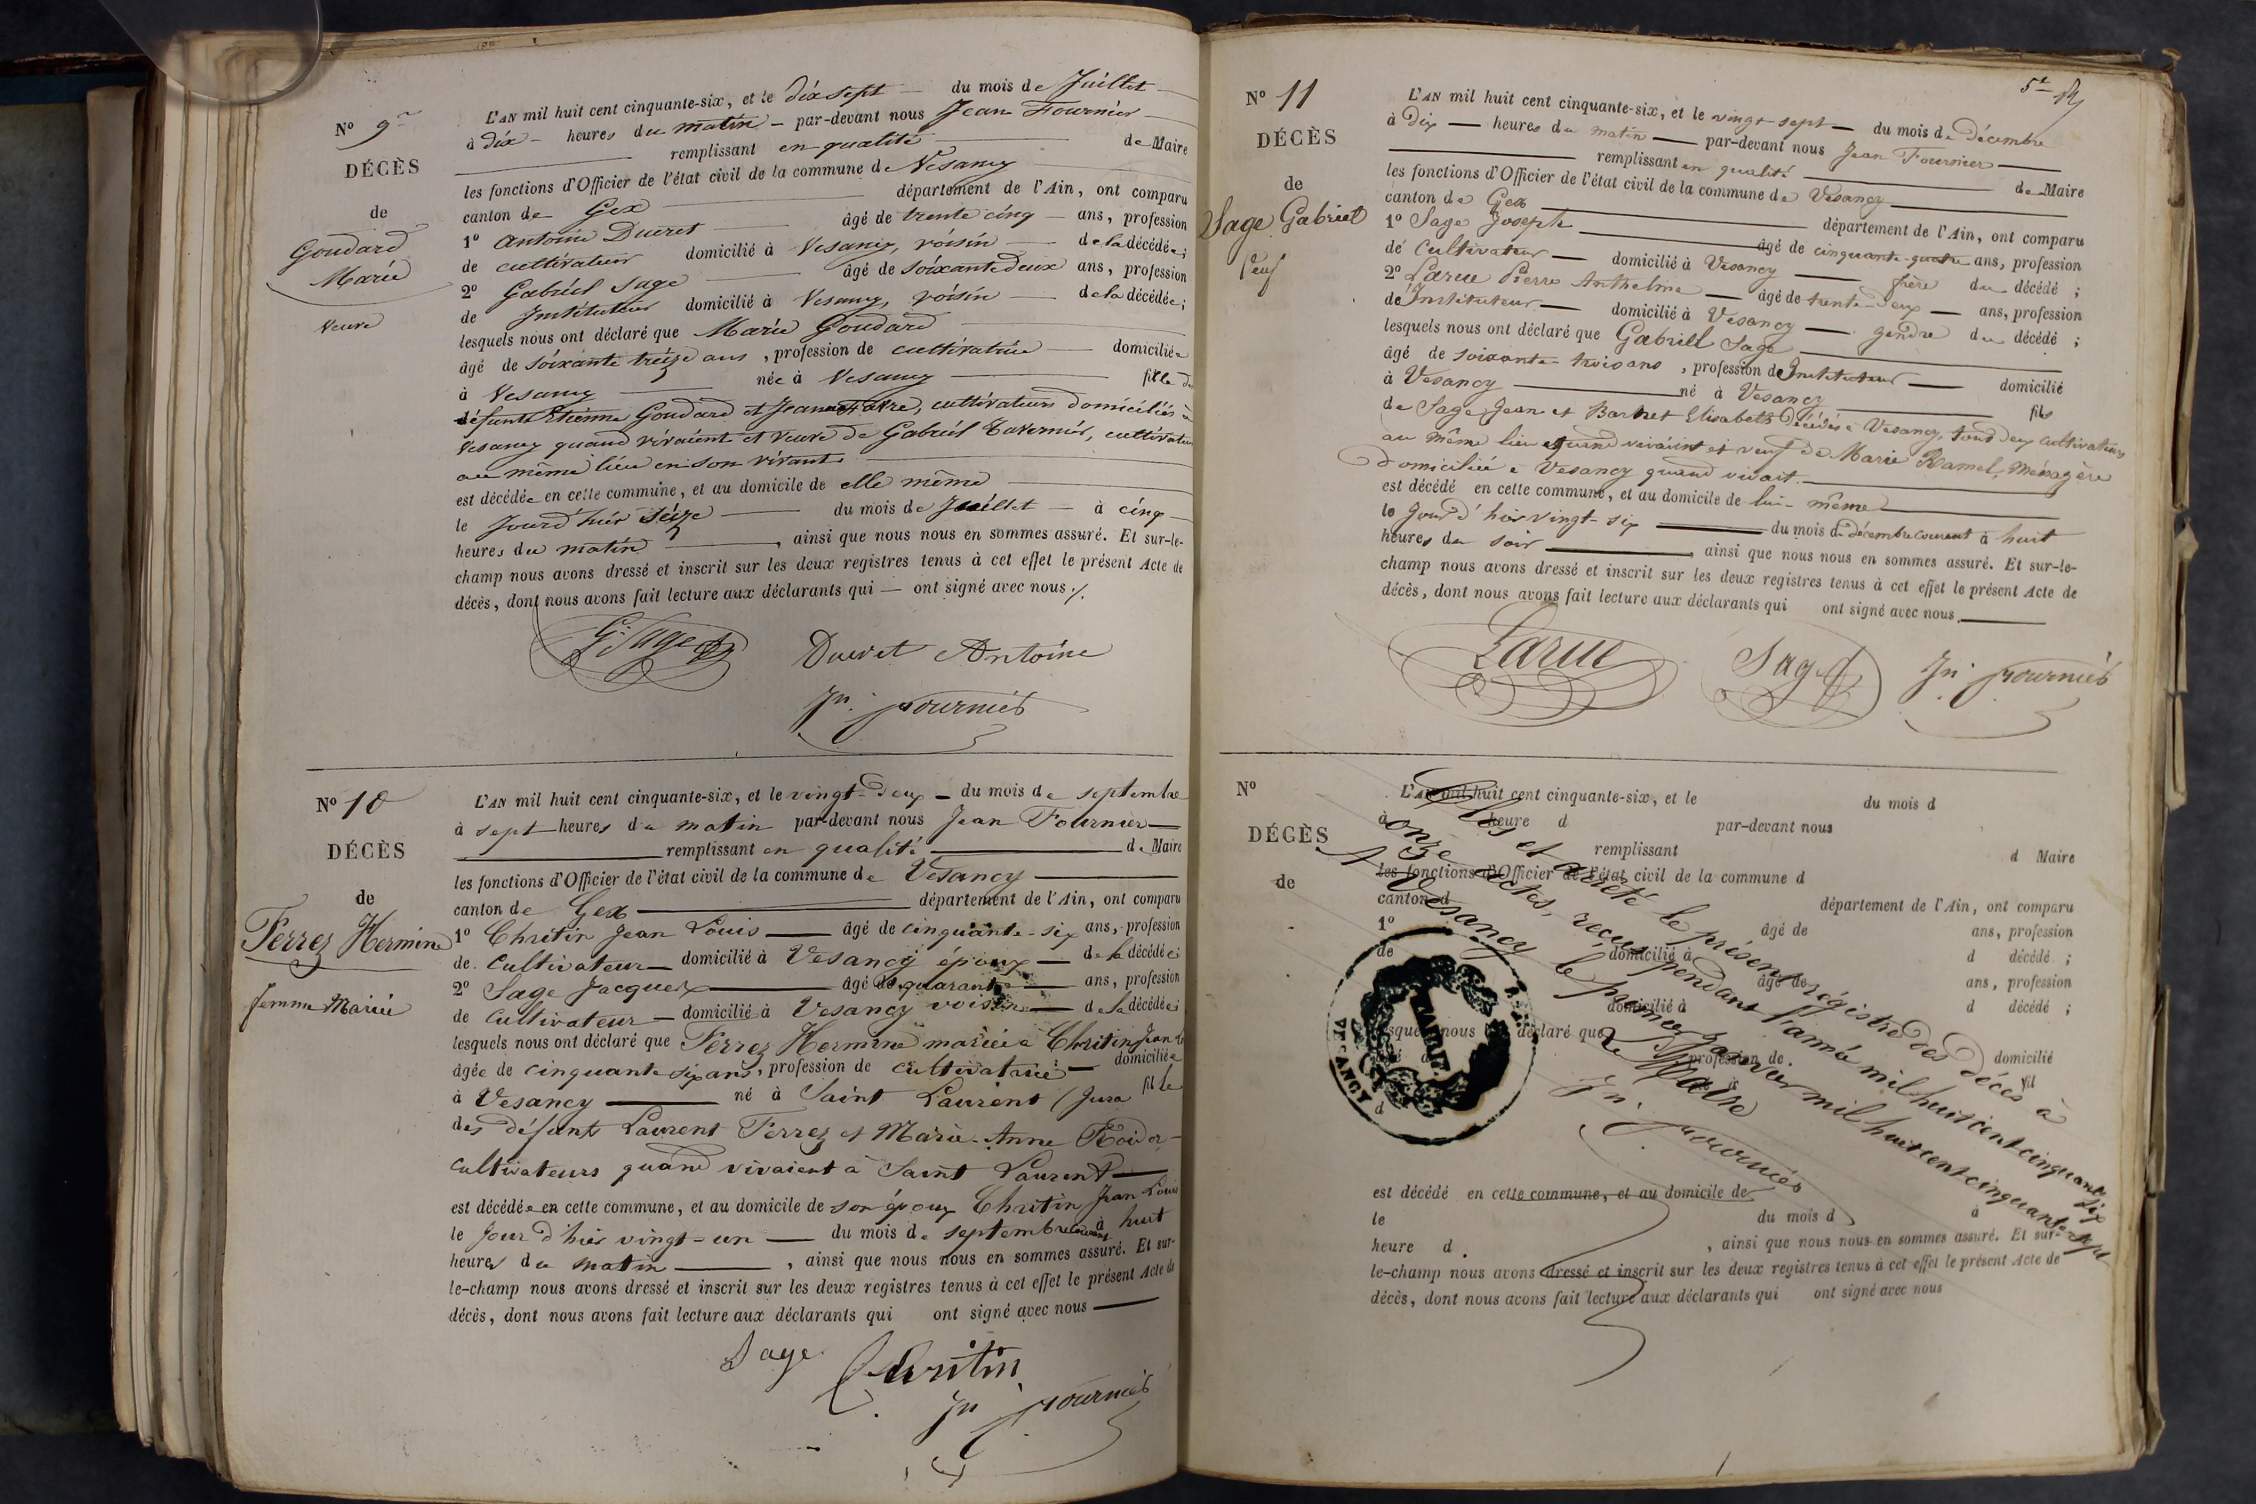 N° 9
DÉCÈS
de
Goudard
Marie
Veuve
L'AN mil huit cent cinquante-six, et le dix sept du mois de Juillet
à dix heures du matin par-devant nous Jean Fournier
remplissant en qualité de Maire
les fonctions d'Officier de l'état civil de la commune de Vesancy
canton de Gex département de l'Ain, ont comparu
1° Antoine Ducret âgé de trente cinq ans, profession
de cultivateur domicilié à Vesancy, voisin de la décédée;
2° Gabriel Sage âgé de soixante deux ans, profession
de Instituteur domicilié à Vesancy, voisin de la décédée;
lesquels nous ont déclaré que Marie Goudard
âgé de soixante treize ans, profession de cultivatrice domiciliée
à Vesancy née à Vesancy fille de
défunts Etienne Goudard et Jeanne Favre, cultivateurs domiciliés à
Vesancy quand vivaient et veuve de Gabriel Tavernier, cultivateur
au même lieu en son vivant
est décédée en cette commune, et au domicile de elle même
le Jourd'hier seize du mois de Juillet à cinq
heures du matin, ainsi que nous nous en sommes assuré. Et sur-le-
champ nous avons dressé et inscrit sur les deux registres tenus à cet effet le présent Acte de
décès, dont nous avons fait lecture aux déclarants qui ont signé avec nous ./.
G. Sage
Ducret Antoine
Jn. Fournier
N° 10
DÉCÈS
de
Ferrez Hermine
femme Mariée
L'AN mil huit cent cinquante-six, et le vingt-deux du mois de septembre
à sept heures du matin par-devant nous Jean Fournier
remplissant en qualité de Maire
les fonctions d'Officier de l'état civil de la commune de Vesancy
canton de Gex département de l'Ain, ont comparu
1° Chritin Jean Louis âgé de cinquante-six ans, profession
de Cultivateur domicilié à Vesancy époux de la décédée;
2° Sage Jacques âgé de quarante ans, profession
de Cultivateur domicilié à Vesancy voisin de la décédée;
lesquels nous ont déclaré que Ferrez Hermine mariée à Chritin Jean L
âgée de cinquante six ans, profession de cultivatrice domiciliée
à Vesancy né à Saint Laurent (Jura fille
des défunts Laurent Ferrez et Marie-Anne
cultivateurs quand vivaient à Saint Laurent
est décédée en cette commune, et au domicile de son époux Chritin Jean Louis
le Jour d'hier vingt-un du mois de septembre courant à huit
heures du matin, ainsi que nous nous en sommes assuré. Et sur-
le-champ nous avons dressé et inscrit sur les deux registres tenus à cet effet le présent Acte de
décès, dont nous avons fait lecture aux déclarants qui ont signé avec nous
Sage
Chritin
Jn Fournier
N° 11
DÉCÈS
de
Sage Gabriel
Veuf
L'AN mil huit cent cinquante-six, et le vingt-sept du mois de décembre
à Dix heures du matin par-devant nous Jean Fournier
remplissant en qualité de Maire
les fonctions d'Officier de l'état civil de la commune de Vesancy
canton de Gex département de l'Ain, ont comparu
1° Sage Joseph âgé de cinquante-quatre ans, profession
de Cultivateur domicilié à Vesancy frère du décédé;
2° Larue Pierre Anthelme âgé de trente-deux ans, profession
de Instituteur domicilié à Vesancy gendre du décédé;
lesquels nous ont déclaré que Gabriel Sage
âgé de soixante-trois ans, profession de Instituteur domicilié
à Vesancy né à Vesancy fils
de Sage Jean et Barbet Elisabeth Décédés à Vesancy, tous deux cultivateurs
au même lieu quand vivaient et veuf de Marie Ramel, Ménagère
Domiciliée à Vesancy quand vivait.
est décédé en cette commune, et au domicile de lui-même
le Jour d'hier vingt-six du mois de décembre courant à huit
heures du soir, ainsi que nous nous en sommes assuré. Et sur-le-
champ nous avons dressé et inscrit sur les deux registres tenus à cet effet le présent Acte de
décès, dont nous avons fait lecture aux déclarants qui ont signé avec nous.
Larue
Sage
Jn Fournier
N°
DÉCÈS
de
L'AN mil huit cent cinquante-six, et le du mois d
à heure d par-devant nous
remplissant d Maire
les fonctions d'Officier de l'état civil de la commune d
canton d département de l'Ain, ont comparu
1° âgé de ans, profession
de domicilié à d décédé;
2° âgé de ans, profession
domicilié à d décédé;
lesquels nous ont déclaré que
profession de domicilié
né à fil
d
Clos et arrêté le présent registre des décès à
onze actes, recus pendant l'année mil huit cent cinquante six
A Vesancy le premier janvier mil huit cent cinquante sept
Le Maire
Jn. Fournier
MAIRIE
VESANCY
est décédé en cette commune, et au domicile de
le du mois d à
heure d, ainsi que nous nous en sommes assuré. Et sur-
le-champ nous avons dressé et inscrit sur les deux registres tenus à cet effet le présent Acte de
décès, dont nous avons fait lecture aux déclarants qui ont signé avec nous